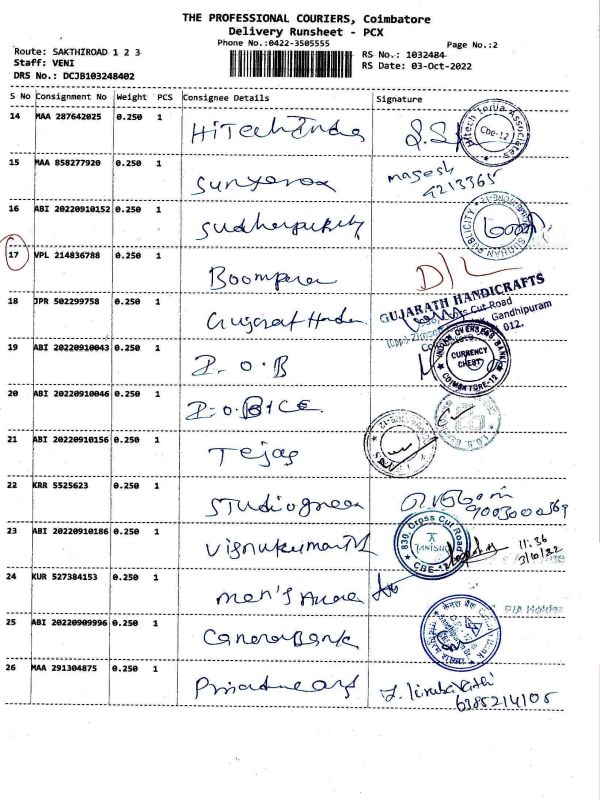 THE PROFESSIONAL COURIERS, Coimbatore
Delivery Runsheet - PCX
Phone No.:0422-3505555
Page No.:2
Route: SAKTHIROAD 1 2 3
RS No.: 1032484
Staff: VENI
RS Date: 03-Oct-2022
DRS No.: DCJB103248402
S No Consignment No Weight PCS Consignee Details Signature
14 MAA 287642025 0.250 1 Hitech India
Hitech India Associates Cbe-12
15 MAA 858277920 0.250 1
magesh
4213365
16 ABI 20220910152 0.250 1
SUDHAN PUBLICITY
17 VPL 214836788 0.250 1 D/L
18 JPR 502299758 0.250 1
GUJARATH HANDICRAFTS
Cut Road
Gandhipuram
012.
19 ABI 20220910043 0.250 1 I.O.B
INDIAN OVERSEAS BANK
CURRENCY
CHEST
COIMBATORE-12
20 ABI 20220910046 0.250 1
21 ABI 20220910156 0.250 1 Tejas
22 KRR 5525623 0.250 1 Studiogreen
9003000369
23 ABI 20220910186 0.250 1
830, Cross Cut Road
TANISHQ
CBE-12
11:36
3/10/22
24 KUR 527384153 0.250 1
P/A Holder
25 ABI 20220909996 0.250 1 Canera Bank
26 MAA 291304875 0.250 1
6385214105